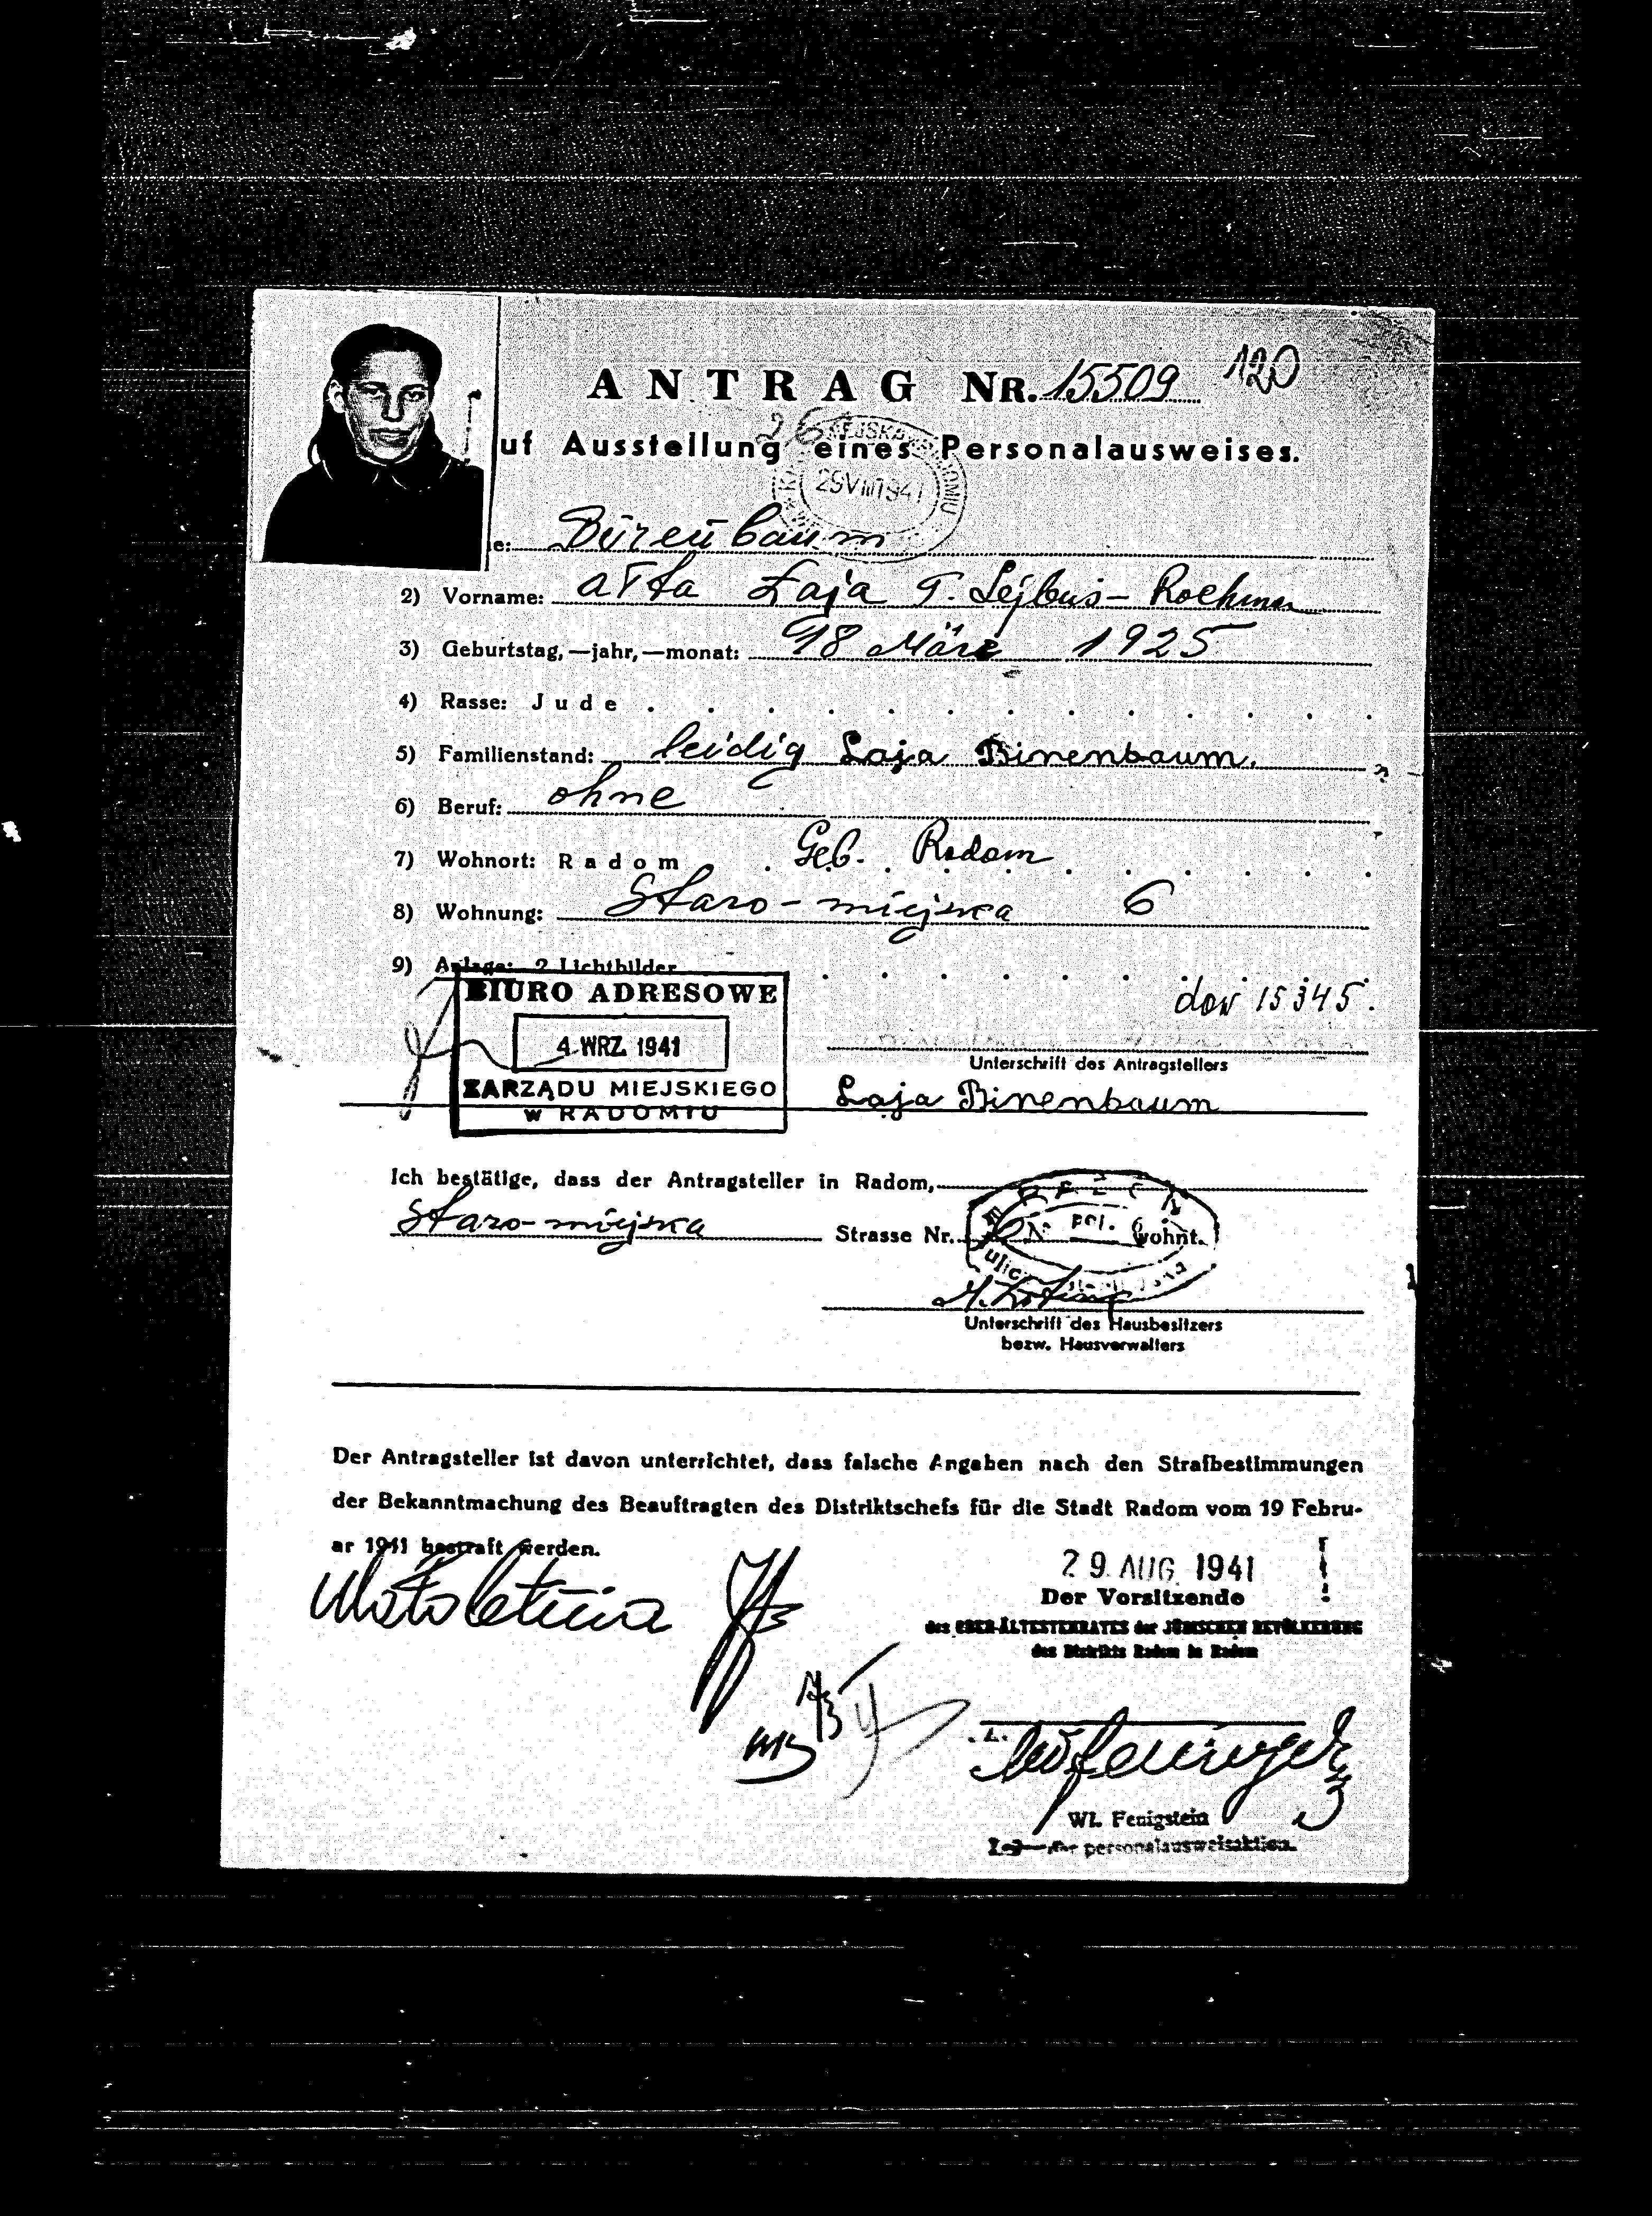 ANTRAG NR. 15509 120
uf Ausstellung eines Personalausweises.
29 VIII 1941
e: Birenbaum
2) Vorname: Łaja T. Lejbuś-
3) Geburtstag,—jahr,—monat: 18 März 1925
4) Rasse: Jude
5) Familienstand: leidig Laja Binenbaum.
6) Beruf: ohne
7) Wohnort: Radom Geb. Radom
8) Wohnung: Staro-miejska 6
9) Anlage: 2 Lichtbilder
BIURO ADRESOWE
4 WRZ. 1941
ZARZĄDU MIEJSKIEGO
W RADOMIU
dow 15345.
Unterschrift des Antragstellers
Laja Binenbaum
Ich bestätige, dass der Antragsteller in Radom,
Staro-miejska Strasse Nr. wohnt.
Nr pol. 6
Unterschrift des Hausbesitzers
bezw. Hausverwalters
Der Antragsteller ist davon unterrichtet, dass falsche Angaben nach den Strafbestimmungen
der Bekanntmachung des Beauftragten des Distriktschefs für die Stadt Radom vom 19 Febru-
ar 1941 bestraft werden.
29. AUG. 1941
Der Vorsitzende
des OBER-ÄLTESTENRATES der JÜDISCHEN BEVÖLKERUNG
des Distrikts Radom in Radom
Wł. Fenigstein
personalausweisaktion.